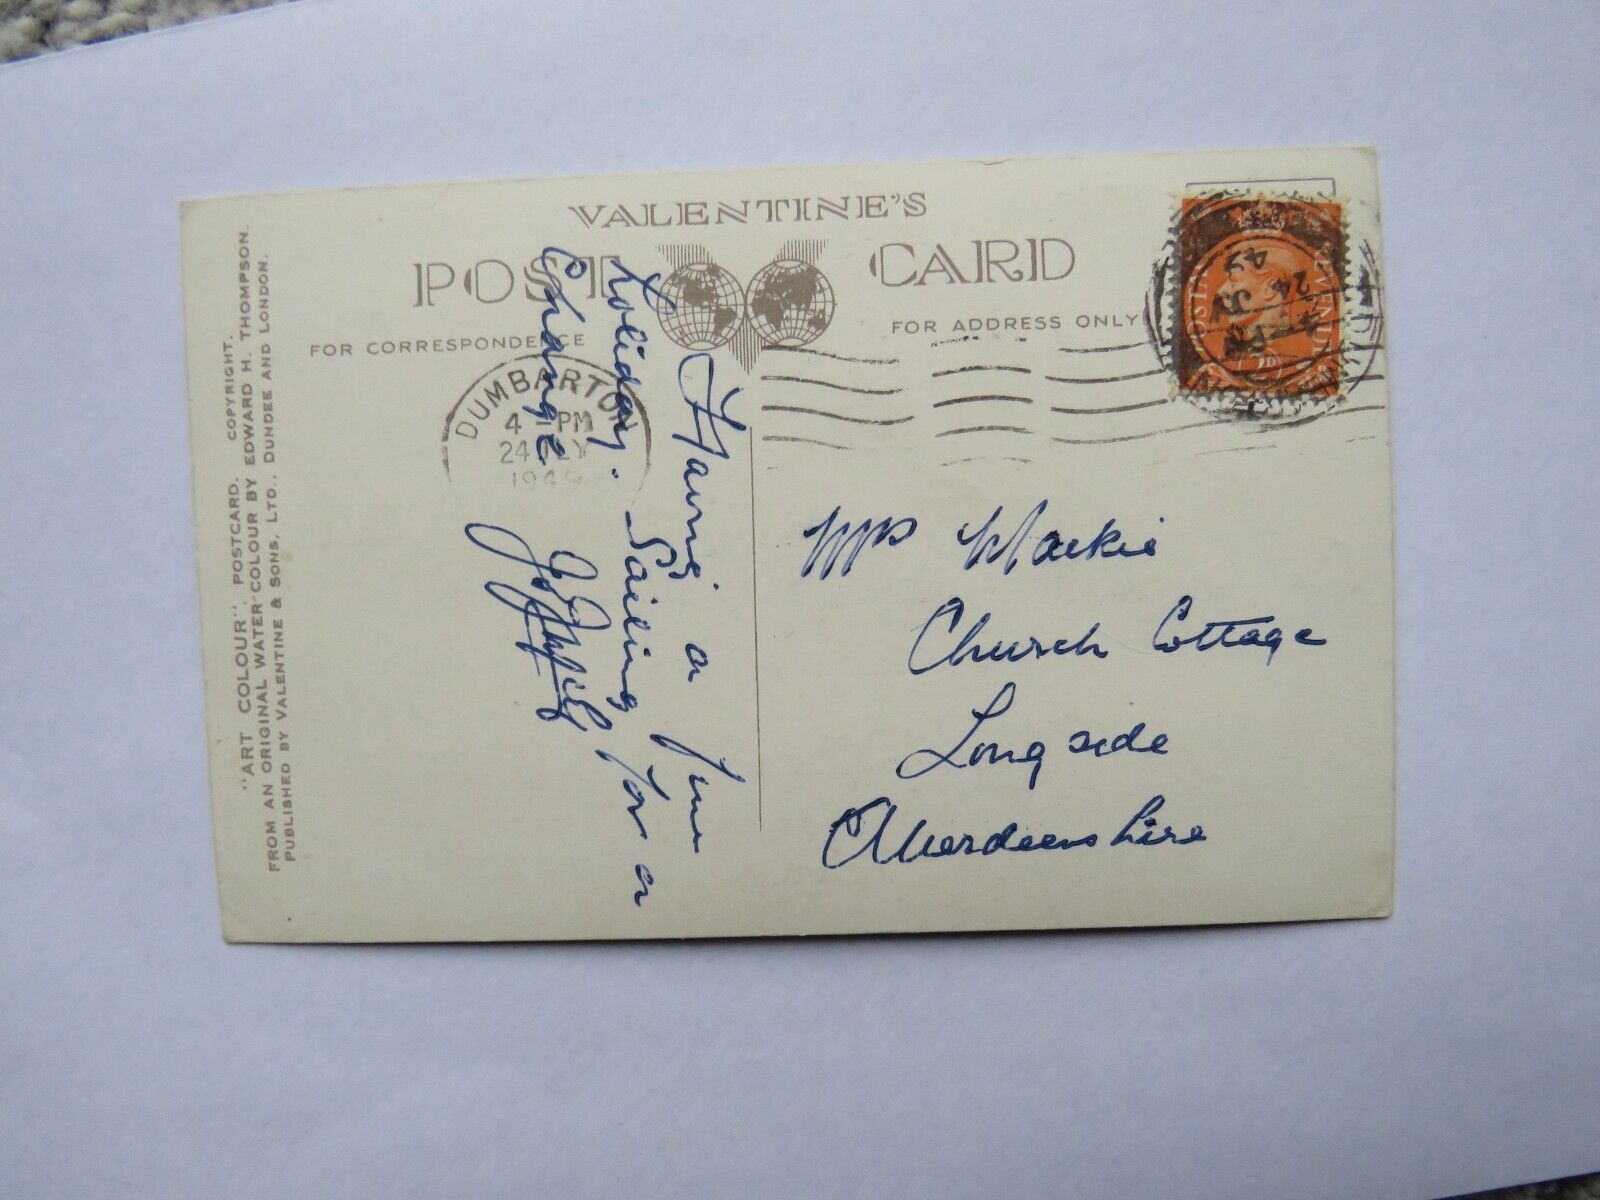 VALENTINE'S
POST CARD
FOR CORRESPONDENCE
FOR ADDRESS ONLY
"ART COLOUR" POSTCARD. COPYRIGHT.
FROM AN ORIGINAL WATER-COLOUR BY EDWARD H. THOMPSON.
PUBLISHED BY VALENTINE & SONS, LTD., DUNDEE AND LONDON.
DUMBARTON
4 PM
24 JLY
1949
Having a fine
holiday. Sailing for a
Change
Mrs Mackie
Church Cottage
Longside
Aberdeenshire
24
49